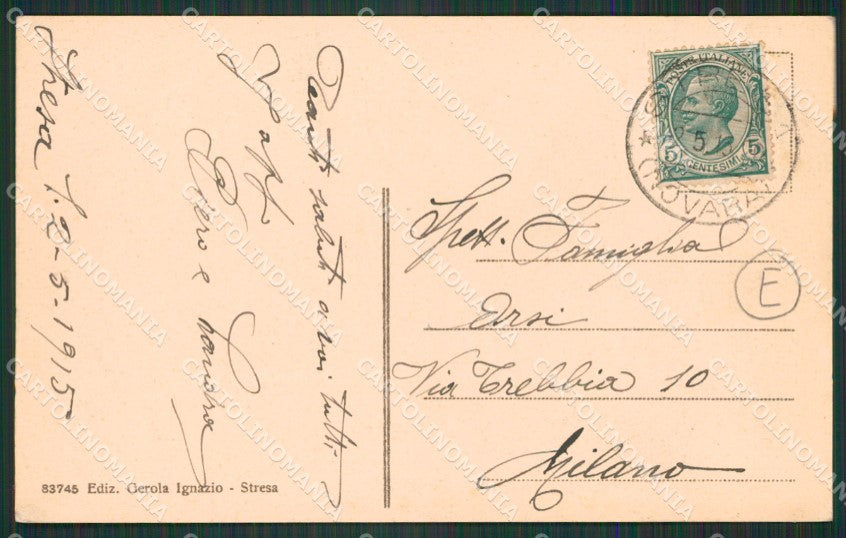 Stresa 1.2-5-1915
Tanti saluti a voi tutti
Piero e
83745 Ediz. Gerola Ignazio - Stresa
POSTE ITALIANE
5 CENTESIMI 5
(NOVARA)
Spett. Famiglia
Arsi
Via Trebbia 10
Milano
E
CARTOLINOMANIA